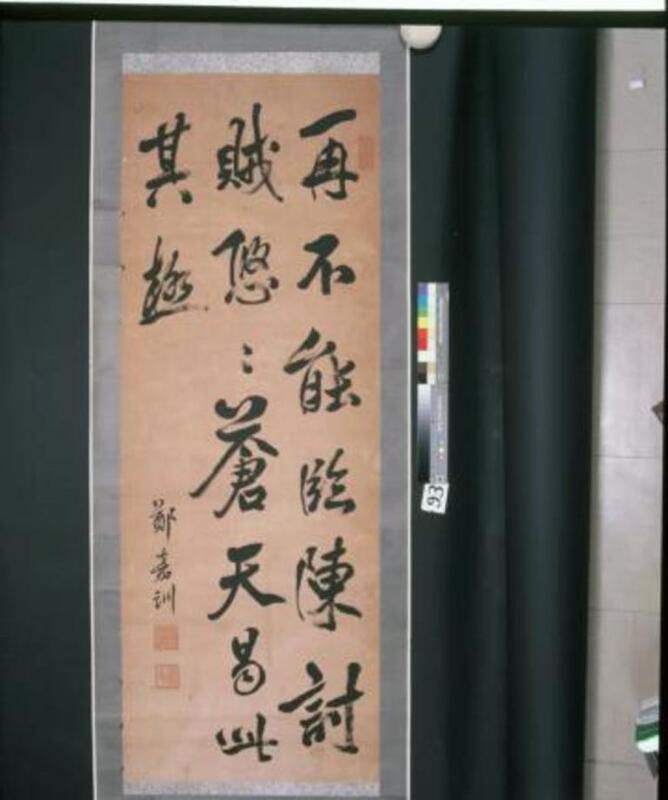 再不能臨陳討
賊悠〻蒼天曷此
其極
鄭嘉訓
93